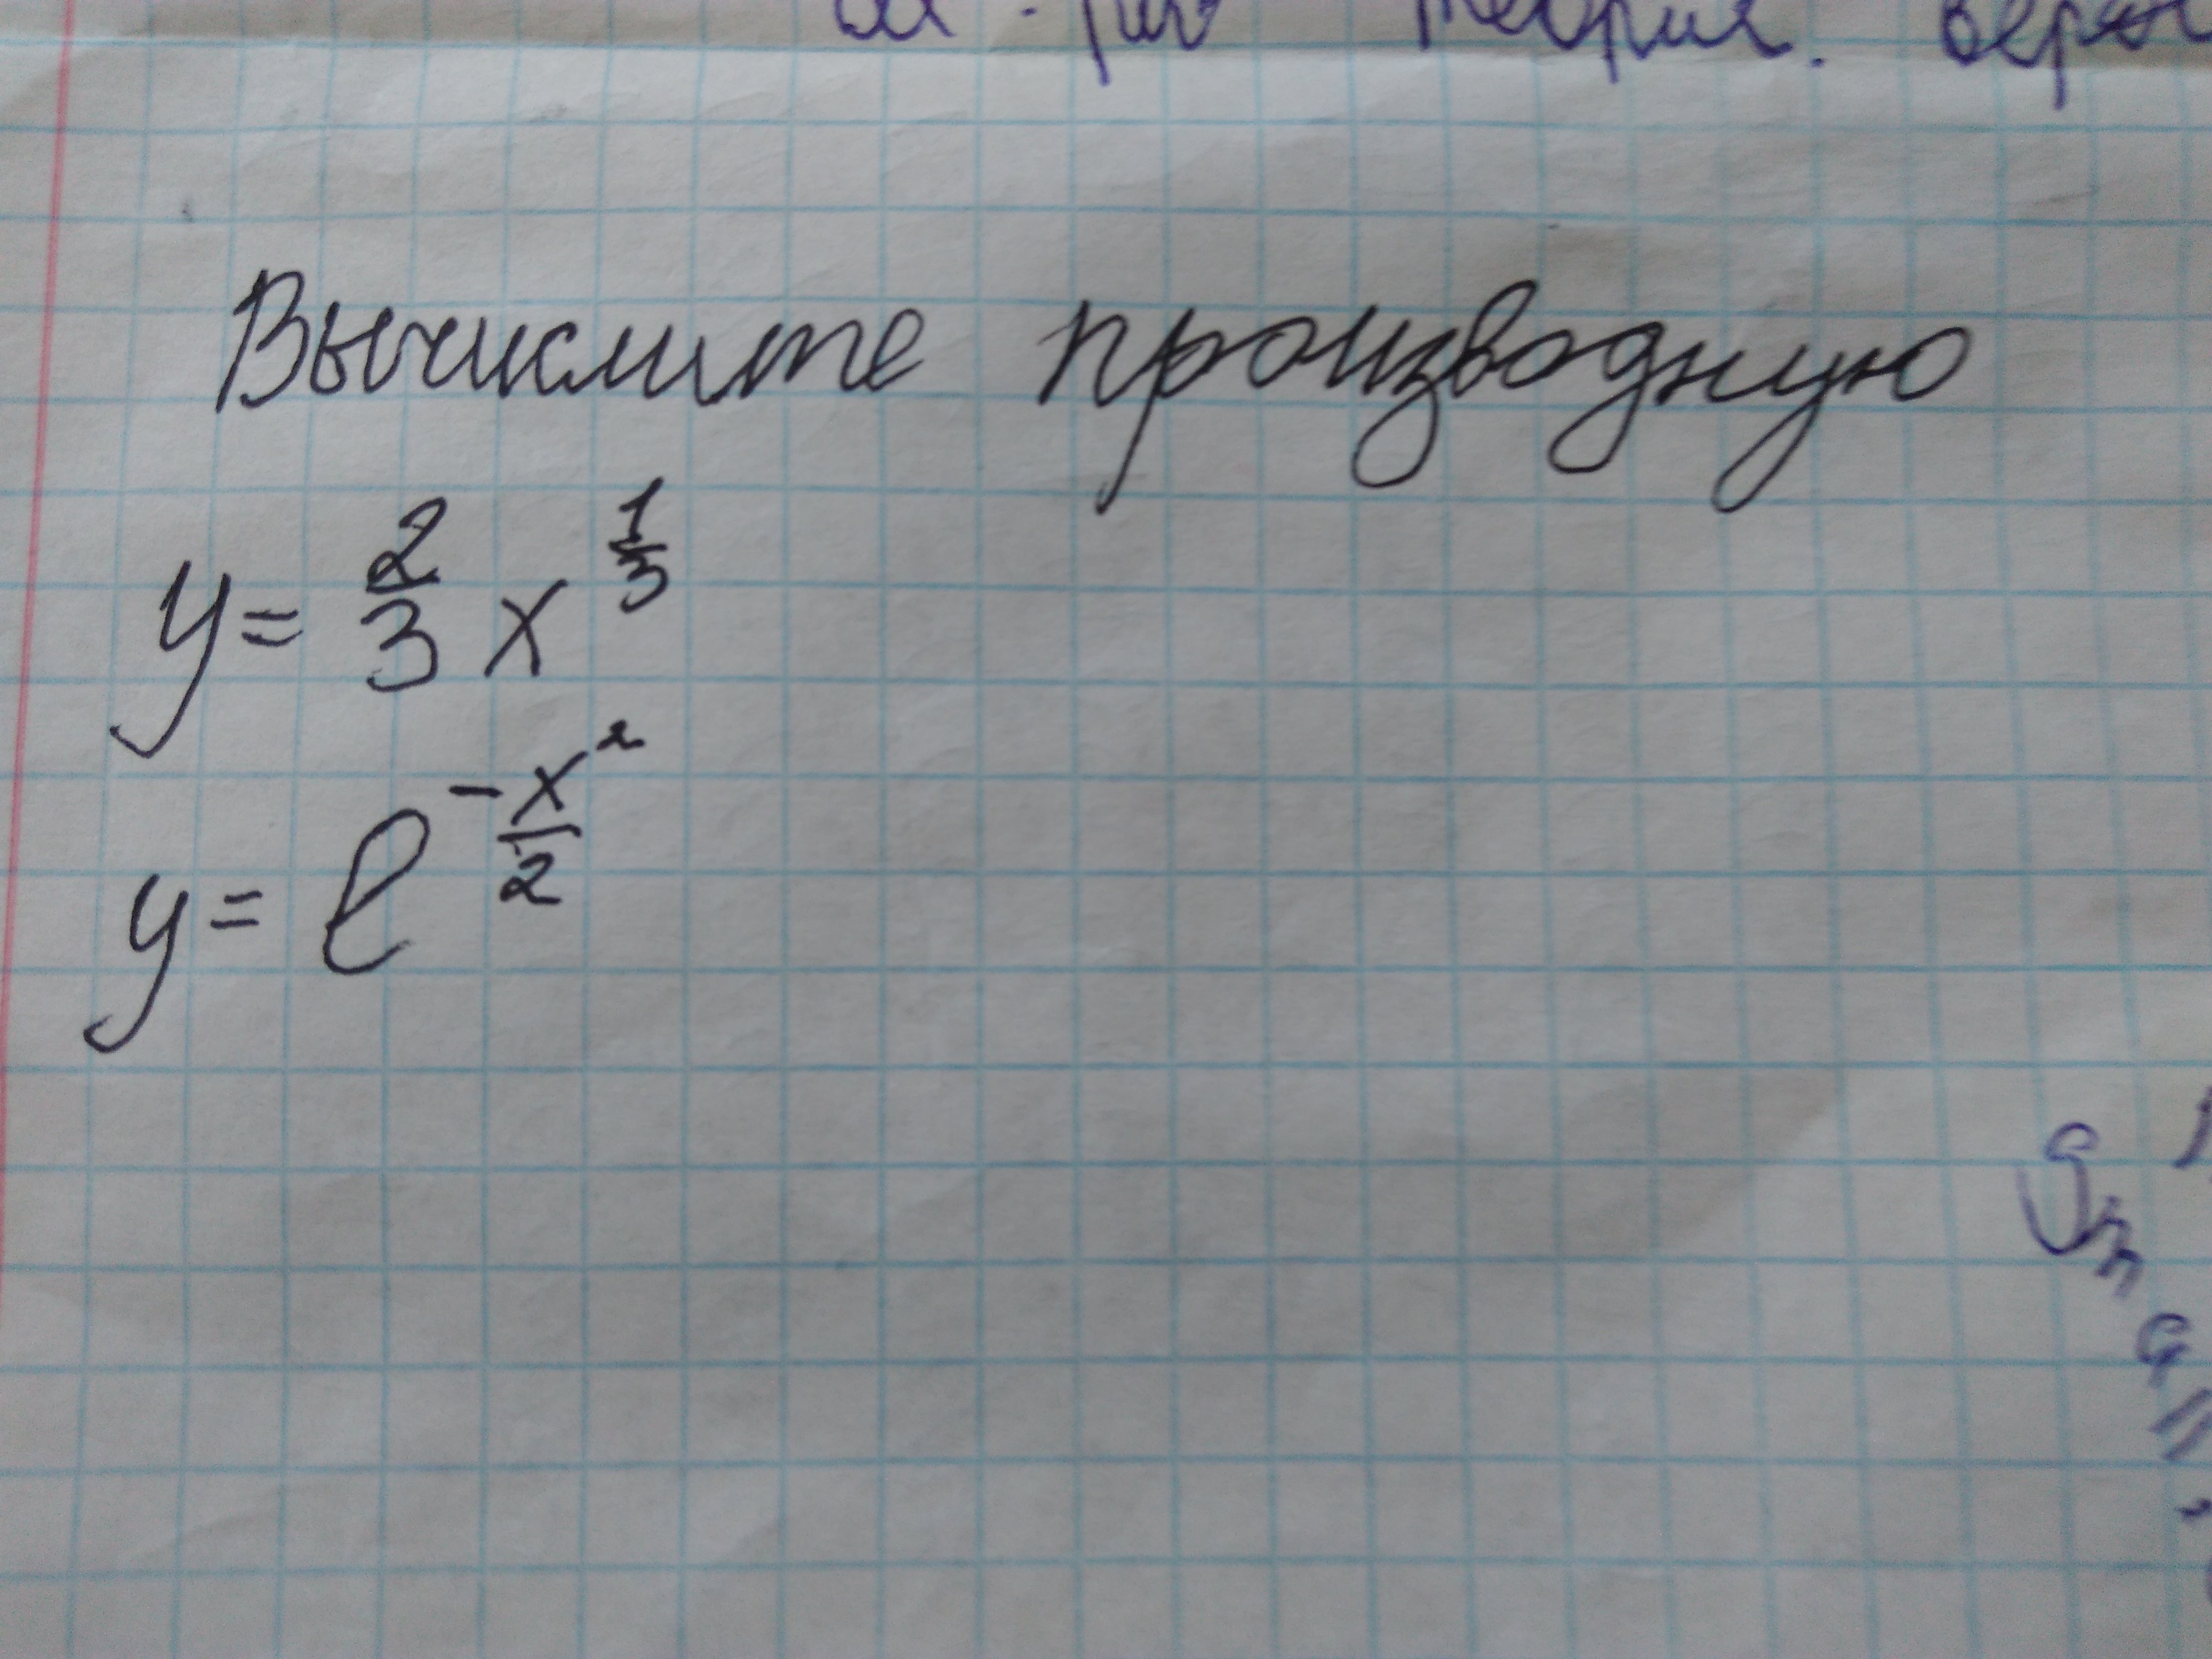 теория.
Вычислите производную
y = 2/3 x^(1/3)
y = e^(-x²/2)